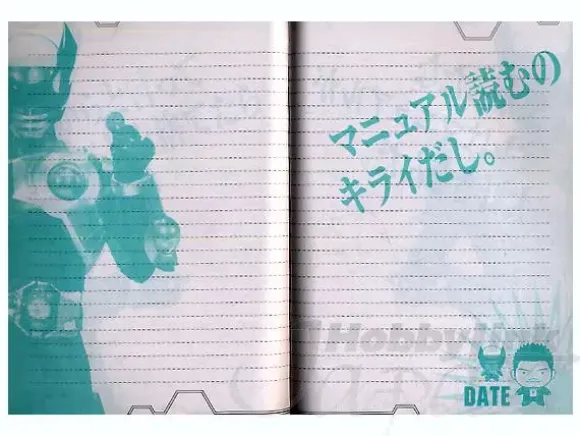 マニュアル読むの
キライだし。
HobbyLink
DATE